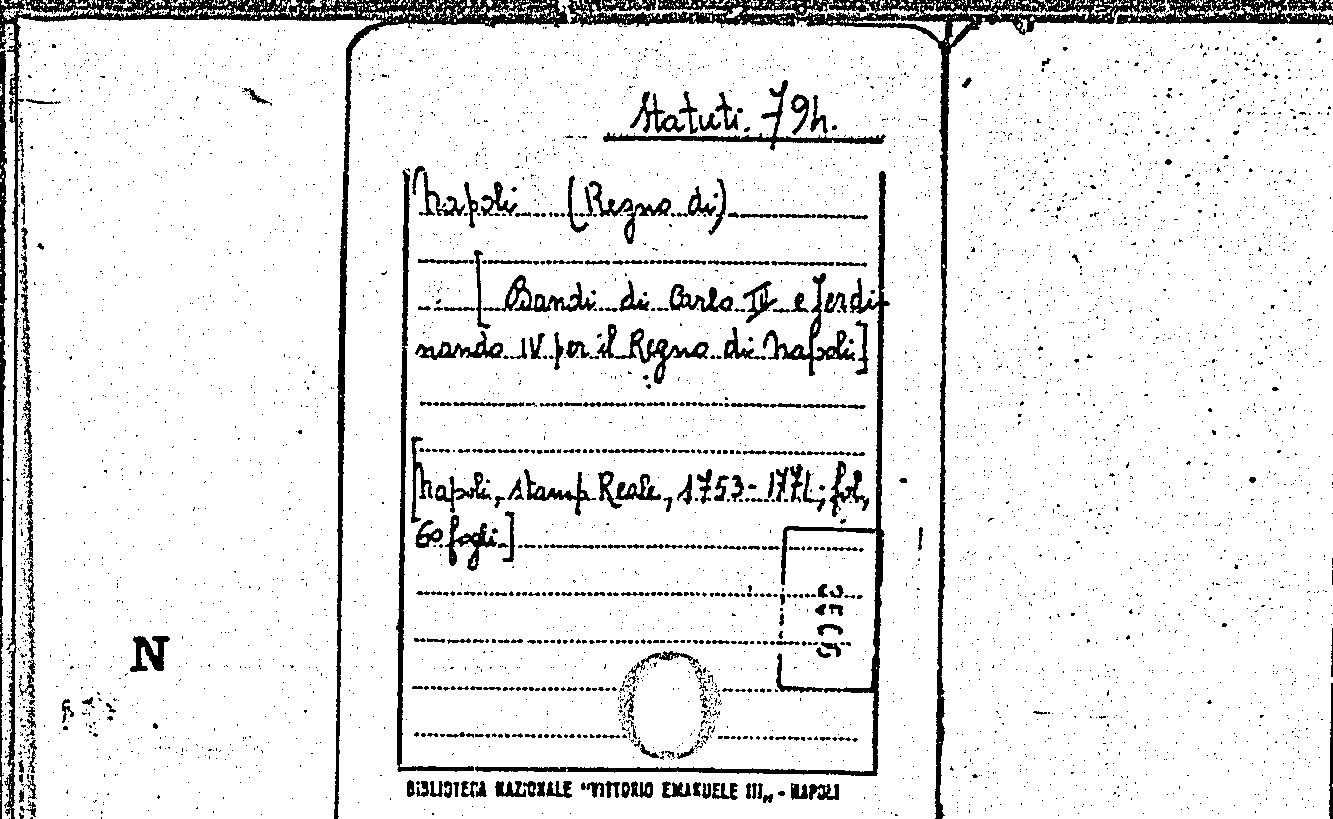 Statuti. 79h.
Napoli (Regno di)
[ Bandi di Carlo III e Ferdi-
nando IV per il Regno di Napoli]
[Napoli, Stamp Reale, 1753-1771; fol,
60 fogli.]
N
BIBLIOTECA NAZIONALE "VITTORIO EMANUELE III„ - NAPOLI